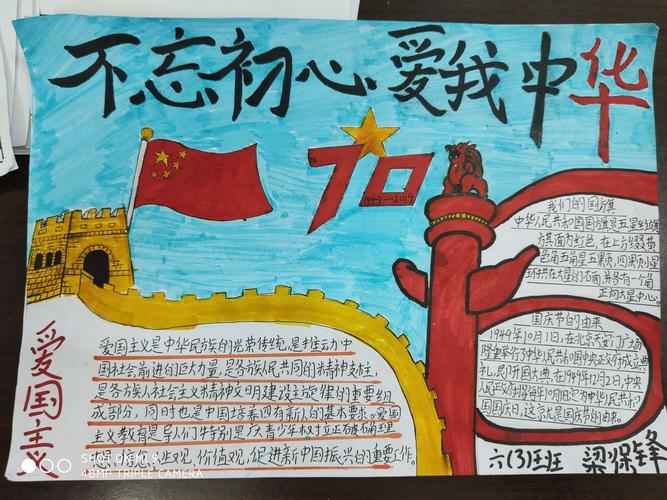 不忘初心爱我中华
70
1949-2019
我们的国旗
中华人民共和国国旗是五星红旗
旗面为红色,在上方缀黄
色角五角星五颗,四颗小星
环拱在大星的右面,并各有一个角
正向大星中心
国庆节的由来
1949年10月1日,在北京天安门广场
隆重举行了中华人民共和国中央政府成立典
礼,即开国大典,在1949年12月2日,中央
人民政府
国国庆日,这就是国庆节的由来。
爱国主义
爱国主义是中华民族的光荣传统,是推动中
国社会前进的巨大力量,是各族人民共同的精神支柱,
是各族人社会主义精神文明建设主旋律的重要组
成部分,同时也是中国培养四有新人的基本要求。爱国
主义教育是
想、信念、人生观、价值观,促进新中国振兴的重要工作。
六(3)班 梁保锋
AI TRIPLE CAMERA